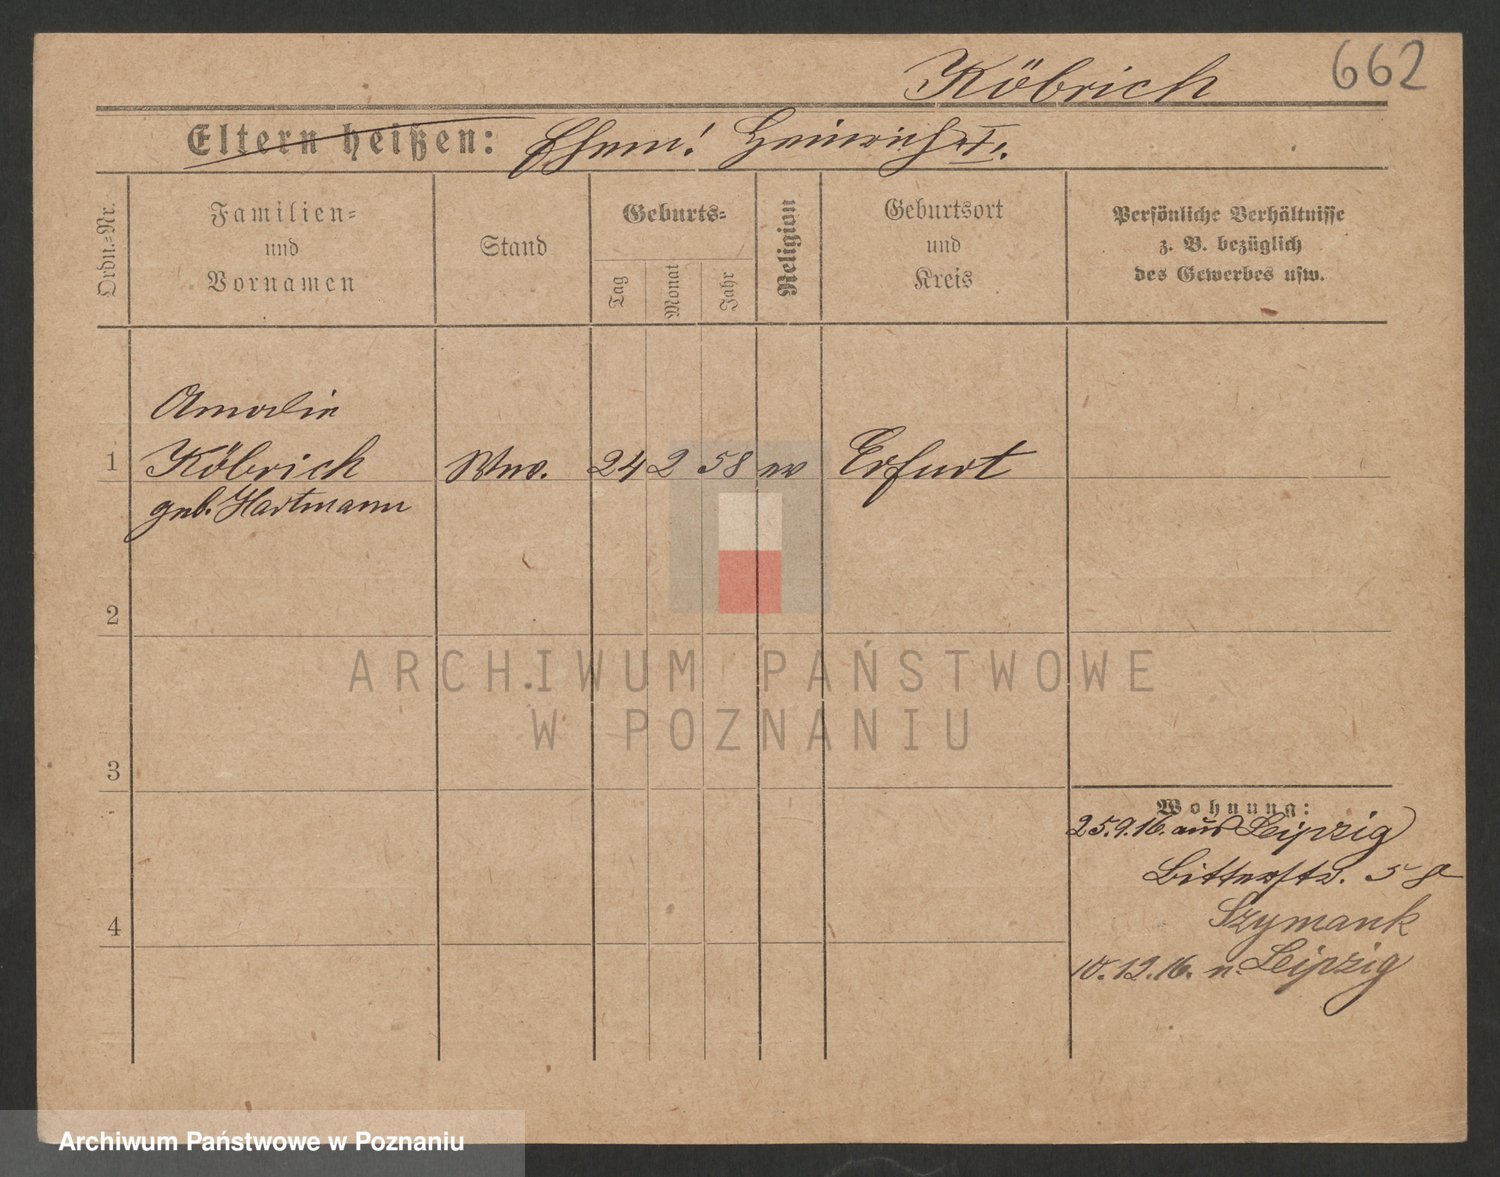 Köbrich 662
Eltern heißen: Ehem! Heinrich †.
Ordn.-Nr.
Familien-
und
Vornamen
Stand
Geburts-
Tag
Monat
Jahr
Religion
Geburtsort
und
Kreis
Persönliche Verhältnisse
z. B. bezüglich
des Gewerbes usw.
Amalie
1 Köbrich Wwe. 24 2 58 ev Erfurt
geb. Hartmann
2
3
4
Wohnung:
25.9.16. aus Leipzig
Bitterstr. 5
Szymank
10.12.16. n. Leipzig
ARCHIWUM PAŃSTWOWE
W POZNANIU
Archiwum Państwowe w Poznaniu